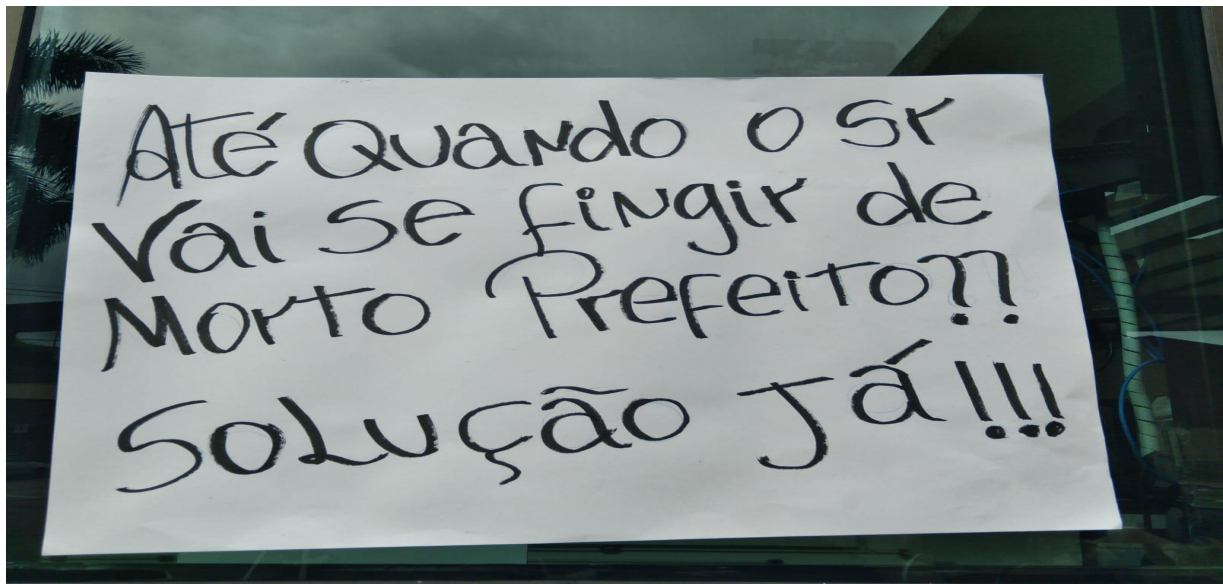 Até Quando o Sr
Vai se fingir de
Morto Prefeito??
Solução Já!!!